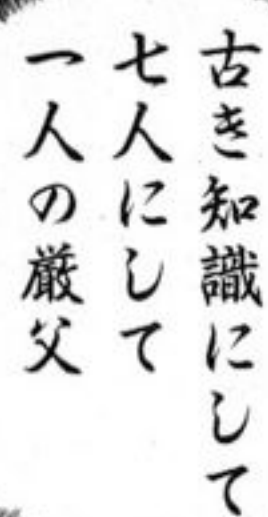 古き知識にして
七人にして
一人の厳父